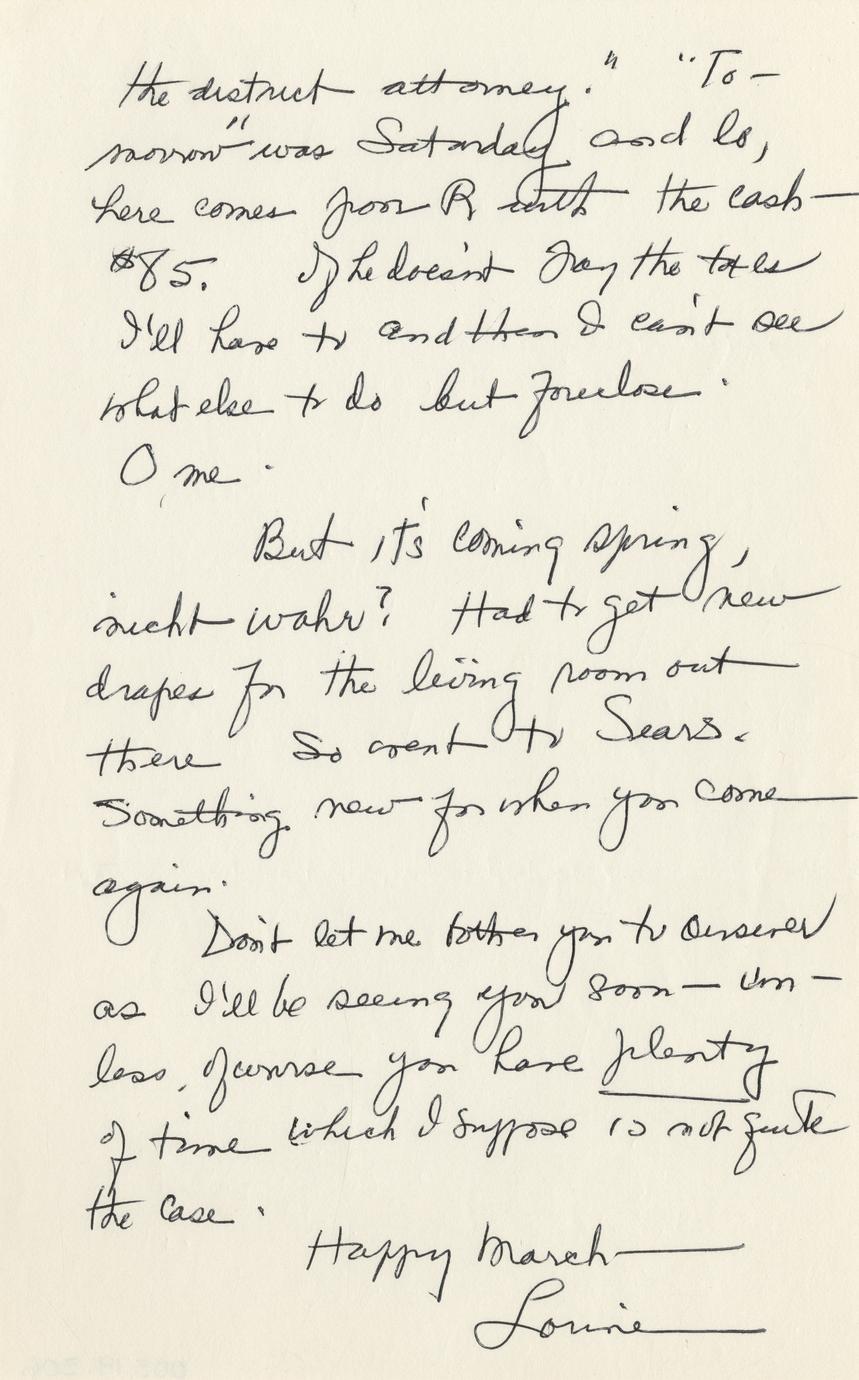 the district attorney." "To-
morrow" was Saturday and lo,
here comes poor R with the cash—
$85. If he doesn't pay the taxes
I'll have to and then I can't see
what else to do but foreclose.
O me.
But it's coming spring,
nicht wahr? Had to get new
drapes for the living room out
there So went to Sears.
Something new for when you come
again.
Don't let me bother you to answer
as I'll be seeing you soon— un-
less, of course you have plenty
of time which I suppose is not quite
the case.
Happy March—
Lorine